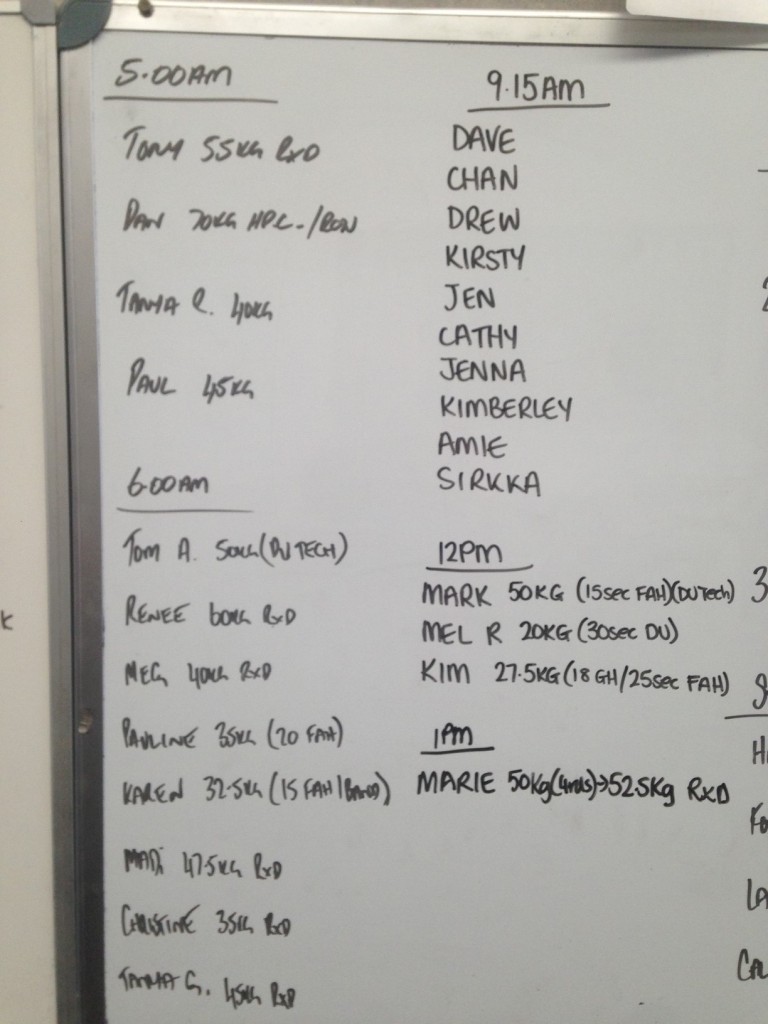 5.00AM
TONY 55KG RXD
DAN 70KG HPC-/ROW
TANYA R. 40KG
PAUL 45KG
6.00AM
TOM A. 50KG (DU TECH)
RENEE 60KG RXD
MEG 40KG RXD
PAULINE 35KG (20 FAH)
KAREN 32.5KG (15 FAH/BAND)
MADI 47.5KG RXD
CHRISTINE 35KG RXD
TANYA G. 45KG RXD
9.15AM
DAVE
CHAN
DREW
KIRSTY
JEN
CATHY
JENNA
KIMBERLEY
AMIE
SIRKKA
12PM
MARK 50KG (15sec FAH)(DU Tech)
MEL R 20KG (30sec DU)
KIM 27.5KG (18 GH/25sec FAH)
1PM
MARIE 50Kg(4rds)→52.5Kg RXD